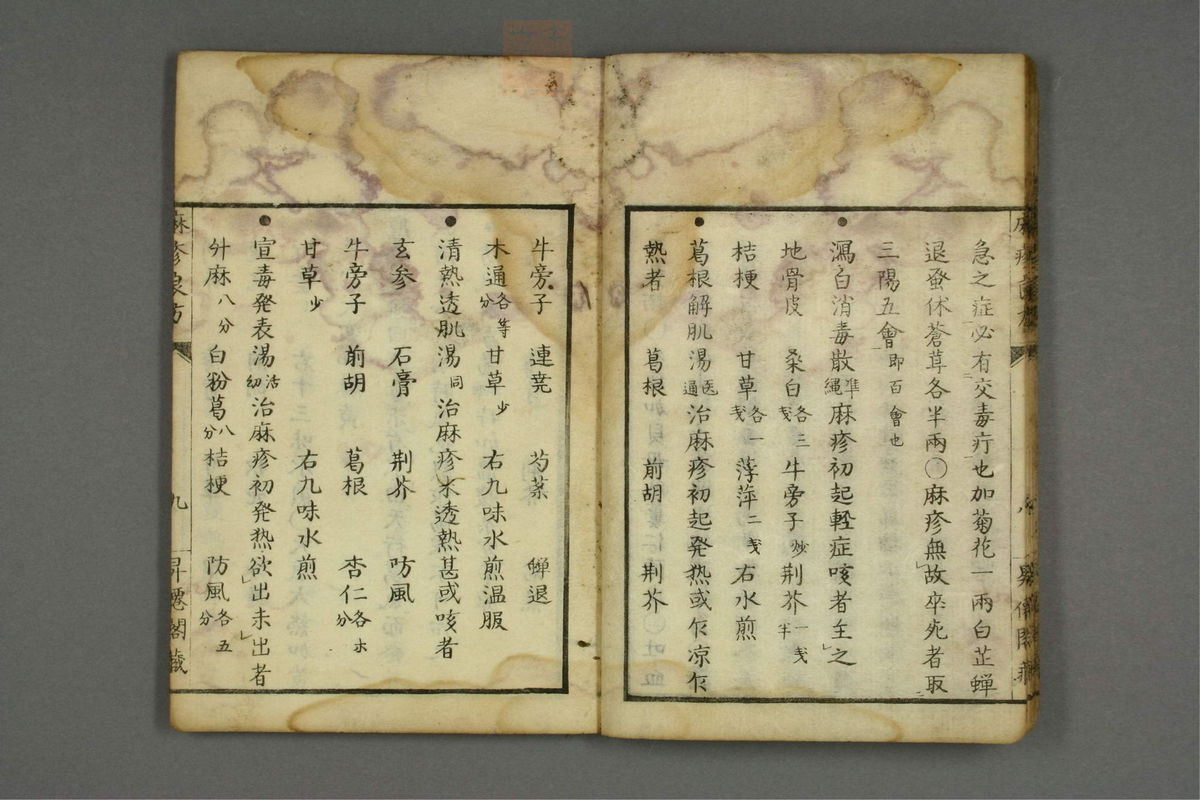 急之症必有交毒疔也加菊花一兩白芷蝉
退蚤休蒼茸各半兩〇麻疹無故卒死者取
三陽五會即百會也
瀉白消毒散準繩麻疹初起軽症咳者主之
地骨皮 桑白各三戔 牛旁子炒 荆芥一戔半
桔梗 甘草各一戔 薄萍二戔 右水煎
葛根解肌湯医通治麻疹初起発熱或乍凉乍
熱者 葛根 前胡 荆芥
牛旁子 連壳 芍薬 蝉退
木通各等分 甘草少 右九味水煎温服
清熱透肌湯同治麻疹未透熱甚或咳者
玄参 石膏 荆芥 防風
牛旁子 前胡 葛根 杏仁各水分
甘草少 右九味水煎
宣毒発表湯活幼治麻疹初発热欲出未出者
升麻八分 白粉葛八分 桔梗 防風各五分
麻疹良方 九 昇遷閣藏